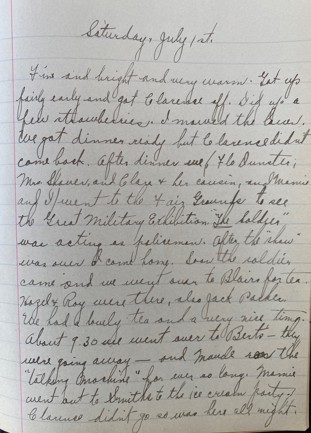 Saturday, July 1st.
Fine and bright and very warm. Got up
fairly early and got Clarence off. Did up a
few strawberries. I mowed the lawn.
We got dinner ready but Clarence didn't
come back. After dinner we, Flo Dunster,
Mrs. and Clara & her cousin, and Mamie
and I went to the Fair Grounds to see
the Great Military Exhibition. The Soldier"
was acting as policeman. After the "show"
was over I come home. Soon the soldier
came and we went over to Blairs for tea.
Hazel & Roy were there, also Jack
We had a lovely tea and a very nice time.
About 9.30 we went over to Berts - they
were going away - and Maude ran the
"talking machine" for ever so long. Mamie
went out to Smiths to the ice cream party.
Clarence didn't go so was here all night.